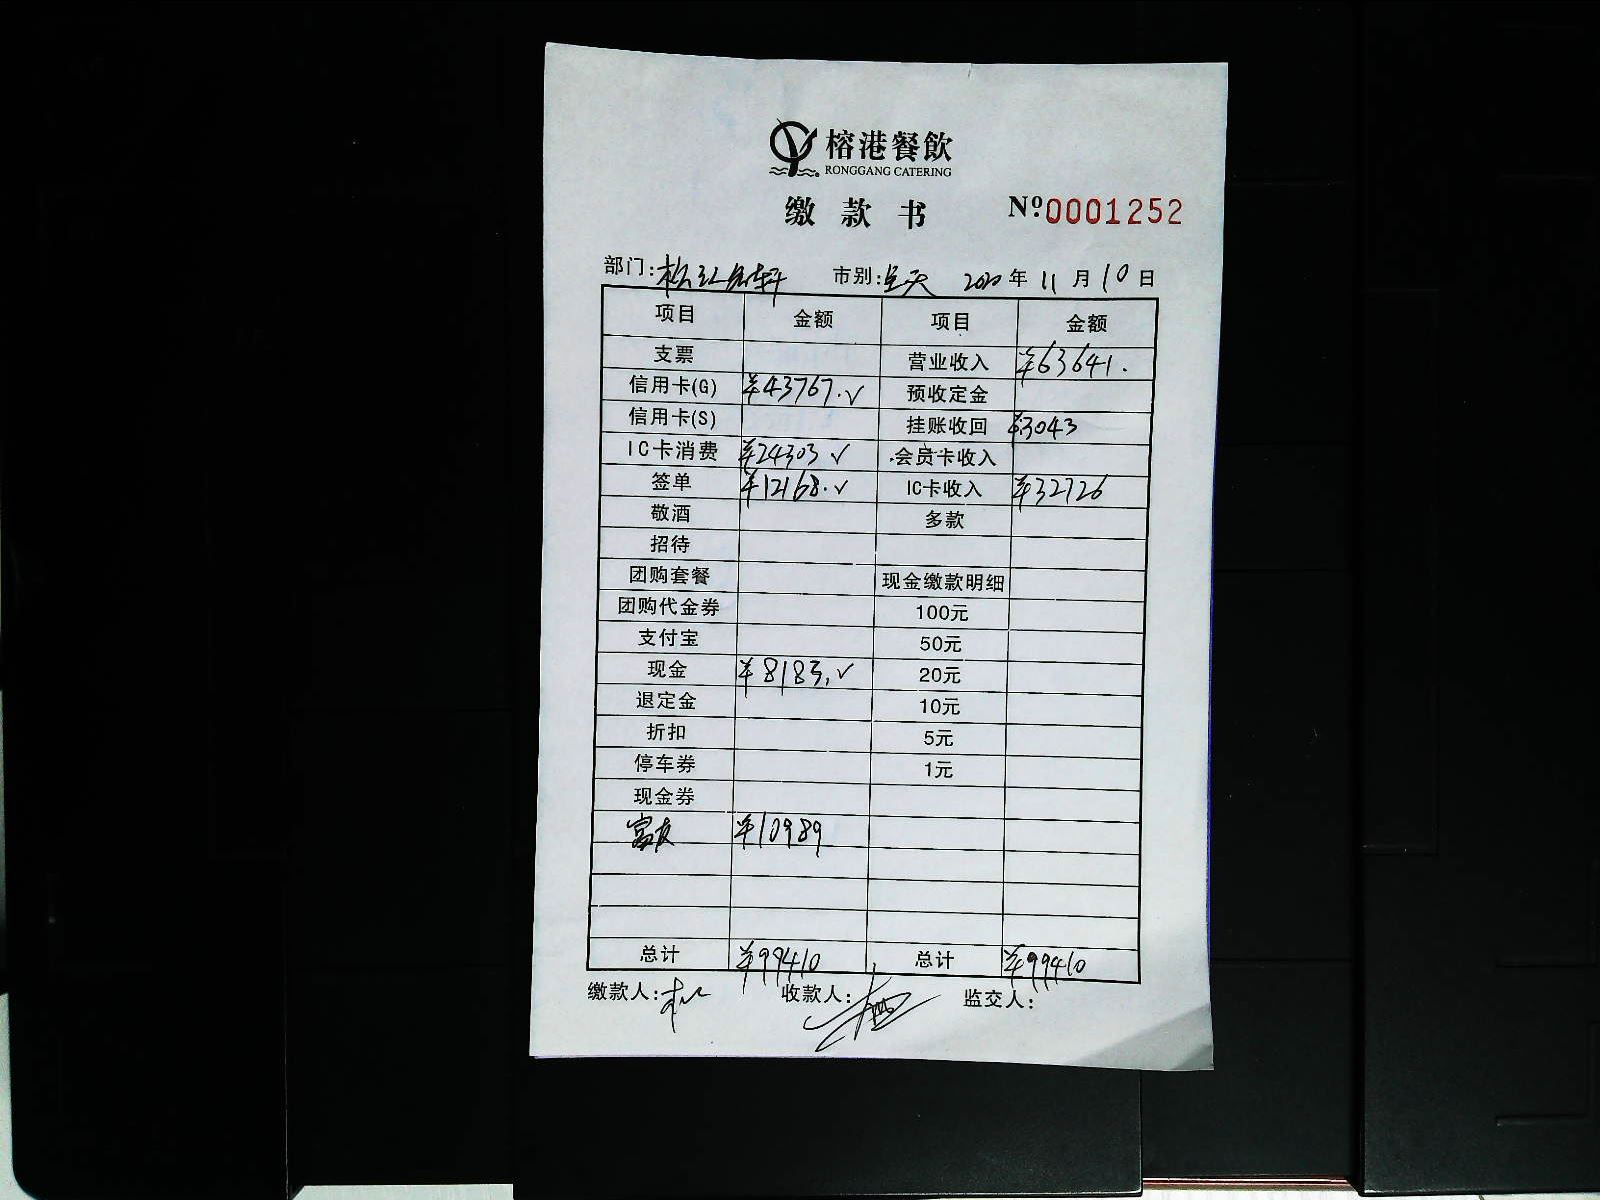 榕港餐飲
RONGGANG CATERING
缴款书 Nº:0001252
部门: 市别:全天 2020年11月10日
项目 金额 项目 金额
支票 营业收入 ¥63641.
信用卡(G) ¥43767.✓ 预收定金
信用卡(S) 挂账收回 ¥3043
IC卡消费 ¥24303 ✓ 会员卡收入
签单 ¥12168.✓ IC卡收入 ¥32726
敬酒 多款
招待
团购套餐 现金缴款明细
团购代金券 100元
支付宝 50元
现金 ¥8183.✓ 20元
退定金 10元
折扣 5元
停车券 1元
现金券
富友 ¥10989
总计 ¥99410 总计 ¥99410
缴款人: 收款人: 监交人: